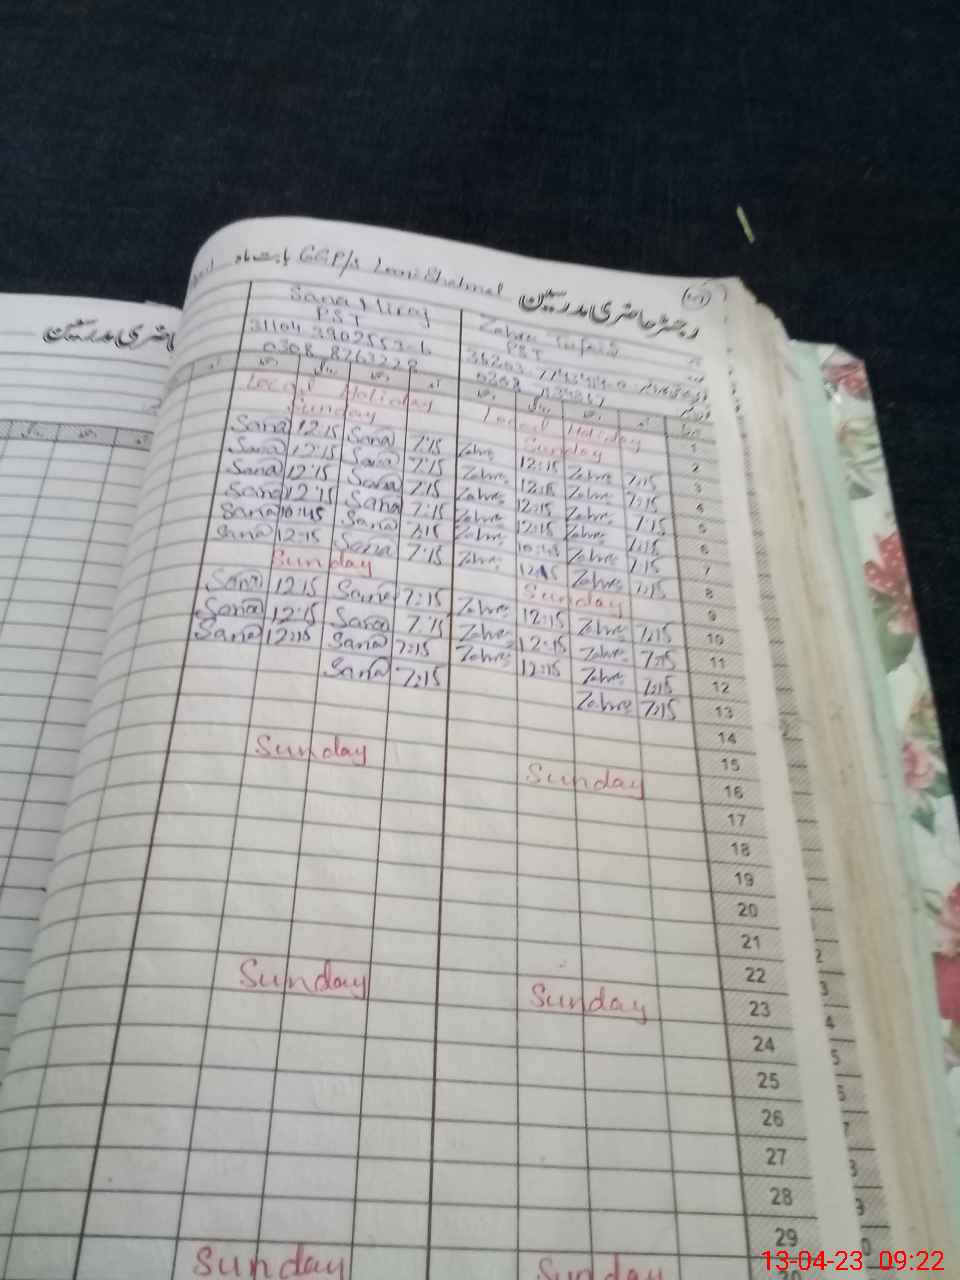 رجسٹر حاضری مدرسین GGP/S بابت ماہ
Sana Miraj
PST
0308 8263228
Zahra
PST
Local Holiday Local Holiday 1
Sunday Sunday 2
Sana 12:15 Sana 7:15 Zahra 12:15 Zahra 7:15 3
Sana 12:15 Sana 7:15 Zahra 12:15 Zahra 7:15 4
Sana 12:15 Sana 7:15 Zahra 12:15 Zahra 7:15 5
Sana 12:15 Sana 7:15 Zahra 12:15 Zahra 7:15 6
Sana 10:45 Sana 7:15 Zahra 10:45 Zahra 7:15 7
Sana 12:15 Sana 7:15 Zahra 12:15 Zahra 7:15 8
Sunday Sunday 9
Sana 12:15 Sana 7:15 Zahra 12:15 Zahra 7:15 10
Sana 12:15 Sana 7:15 Zahra 12:15 Zahra 7:15 11
Sana 12:15 Sana 7:15 Zahra 12:15 Zahra 7:15 12
Sana 7:15 Zahra 7:15 13
14
15
Sunday Sunday 16
17
18
19
20
21
22
Sunday Sunday 23
24
25
26
27
28
29
Sunday Sunday
13-04-23 09:22